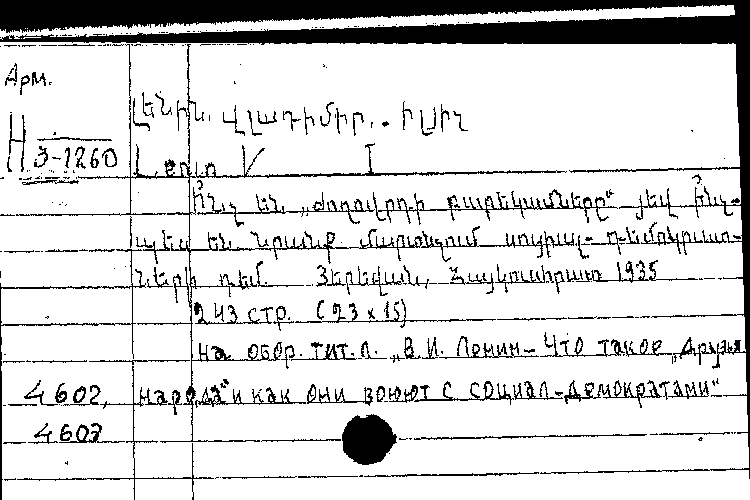 Арм.
Լենին. Վլադիմիր. Իլյիչ
Н 3-1260
Ի՞նչ են „ժողովրդի բարեկամները“ յեվ ի՞նչ-
պես են նրանք մարտնչում սոցիալ-դեմոկրատ-
ների դեմ. Յերեվան, Հայկուսհրատ 1935
243 стр. (23 x 15)
На обор. тит. л. „В. И. Ленин – Что такое „Друзья
4602, народа“ и как они воюют с социал-демократами“
4603